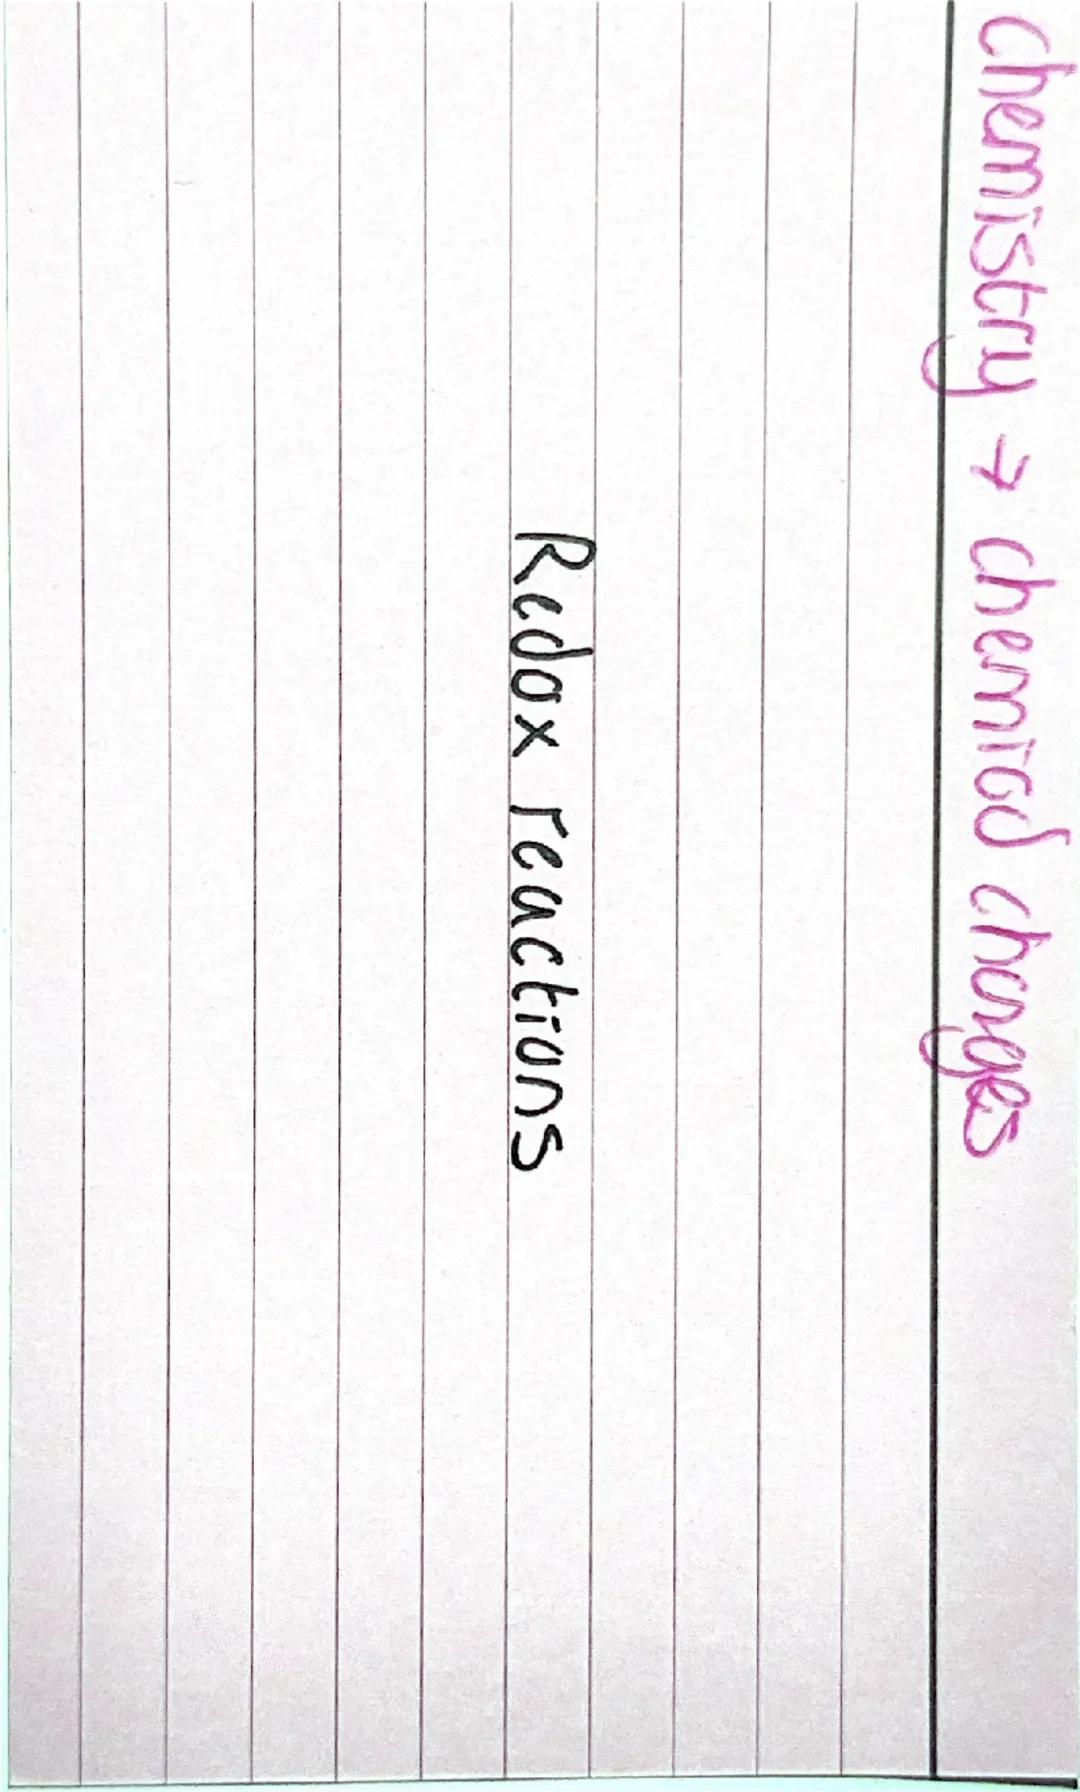 Chemistry → chemical changes
Redox reactions